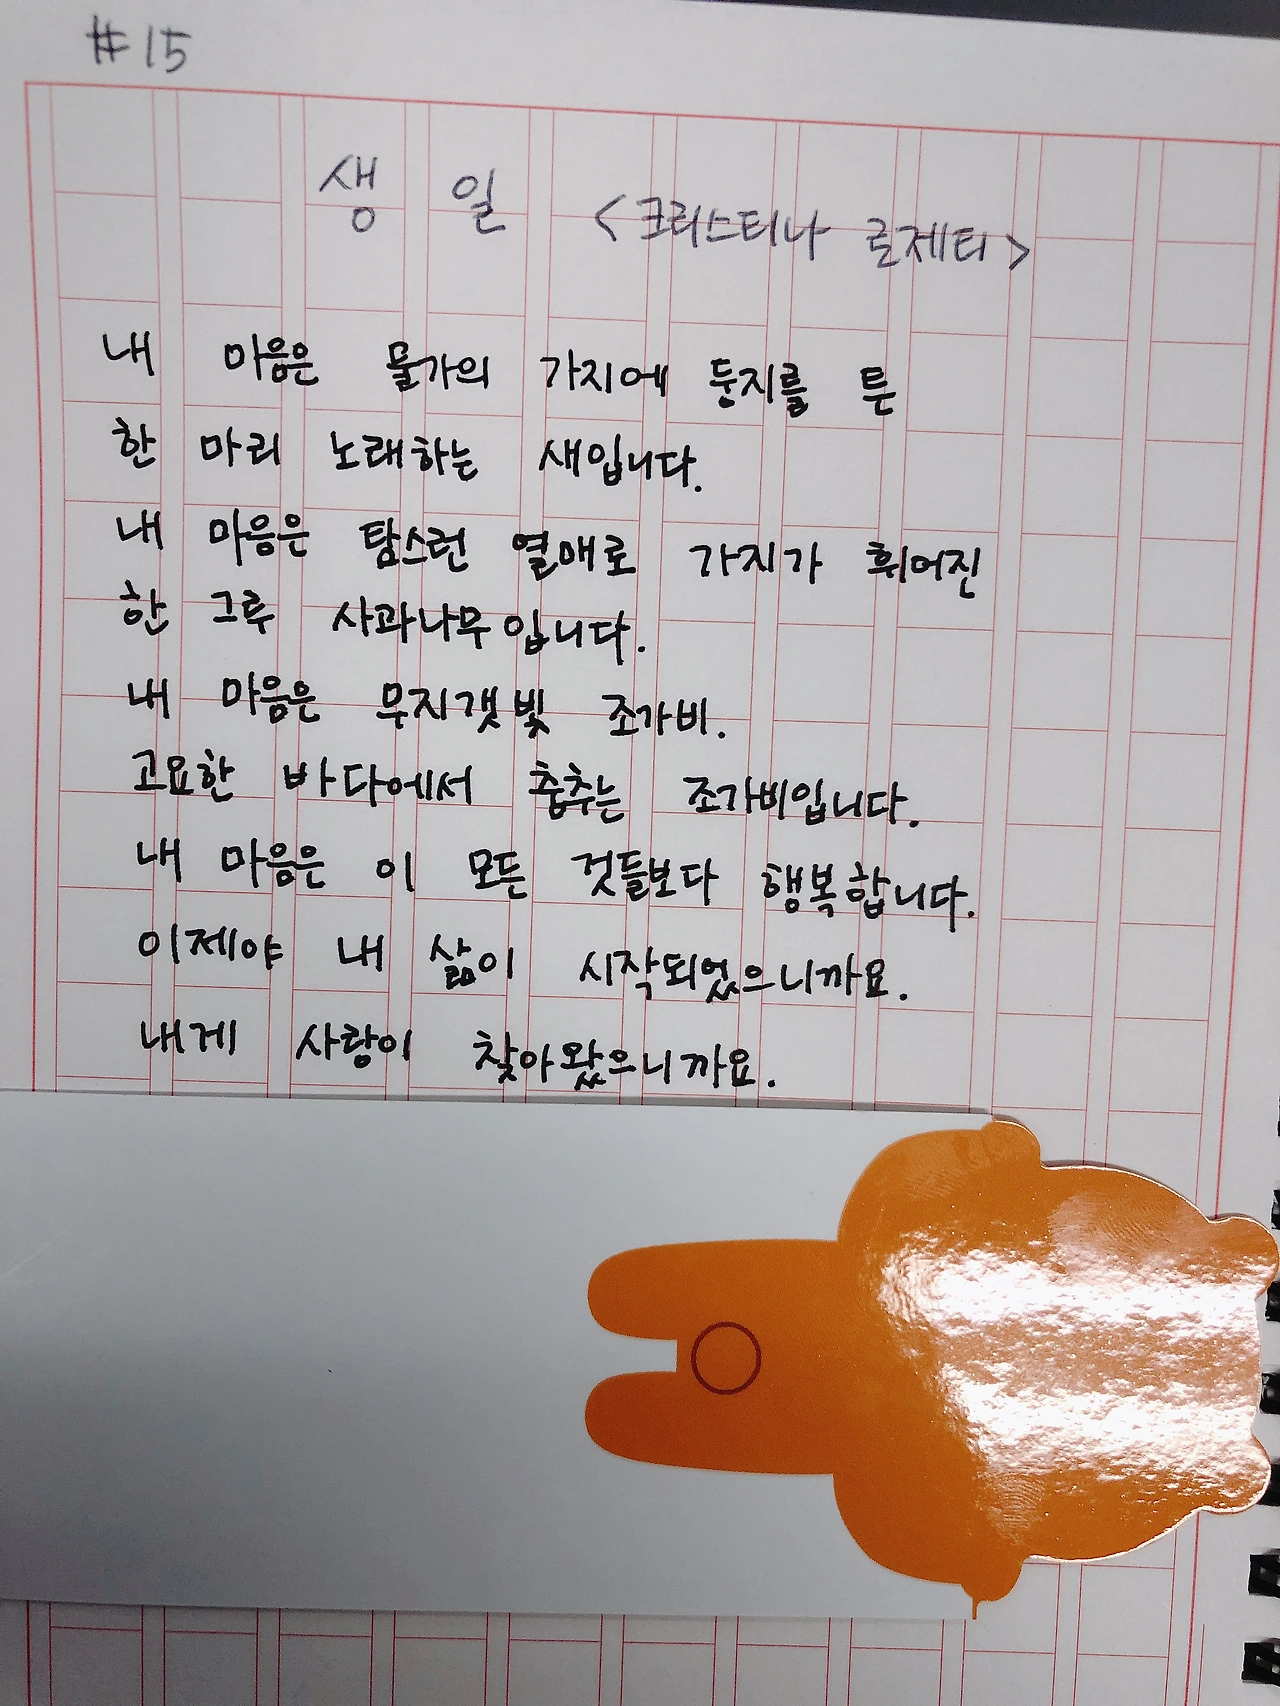 #15
생일 <크리스티나 로제티>
내 마음은 물가의 가지에 둥지를 튼
한 마리 노래하는 새입니다.
내 마음은 탐스런 열매로 가지가 휘어진
한 그루 사과나무입니다.
내 마음은 무지갯빛 조가비.
고요한 바다에서 춤추는 조가비입니다.
내 마음은 이 모든 것들보다 행복합니다.
이제야 내 삶이 시작되었으니까요.
내게 사랑이 찾아왔으니까요.